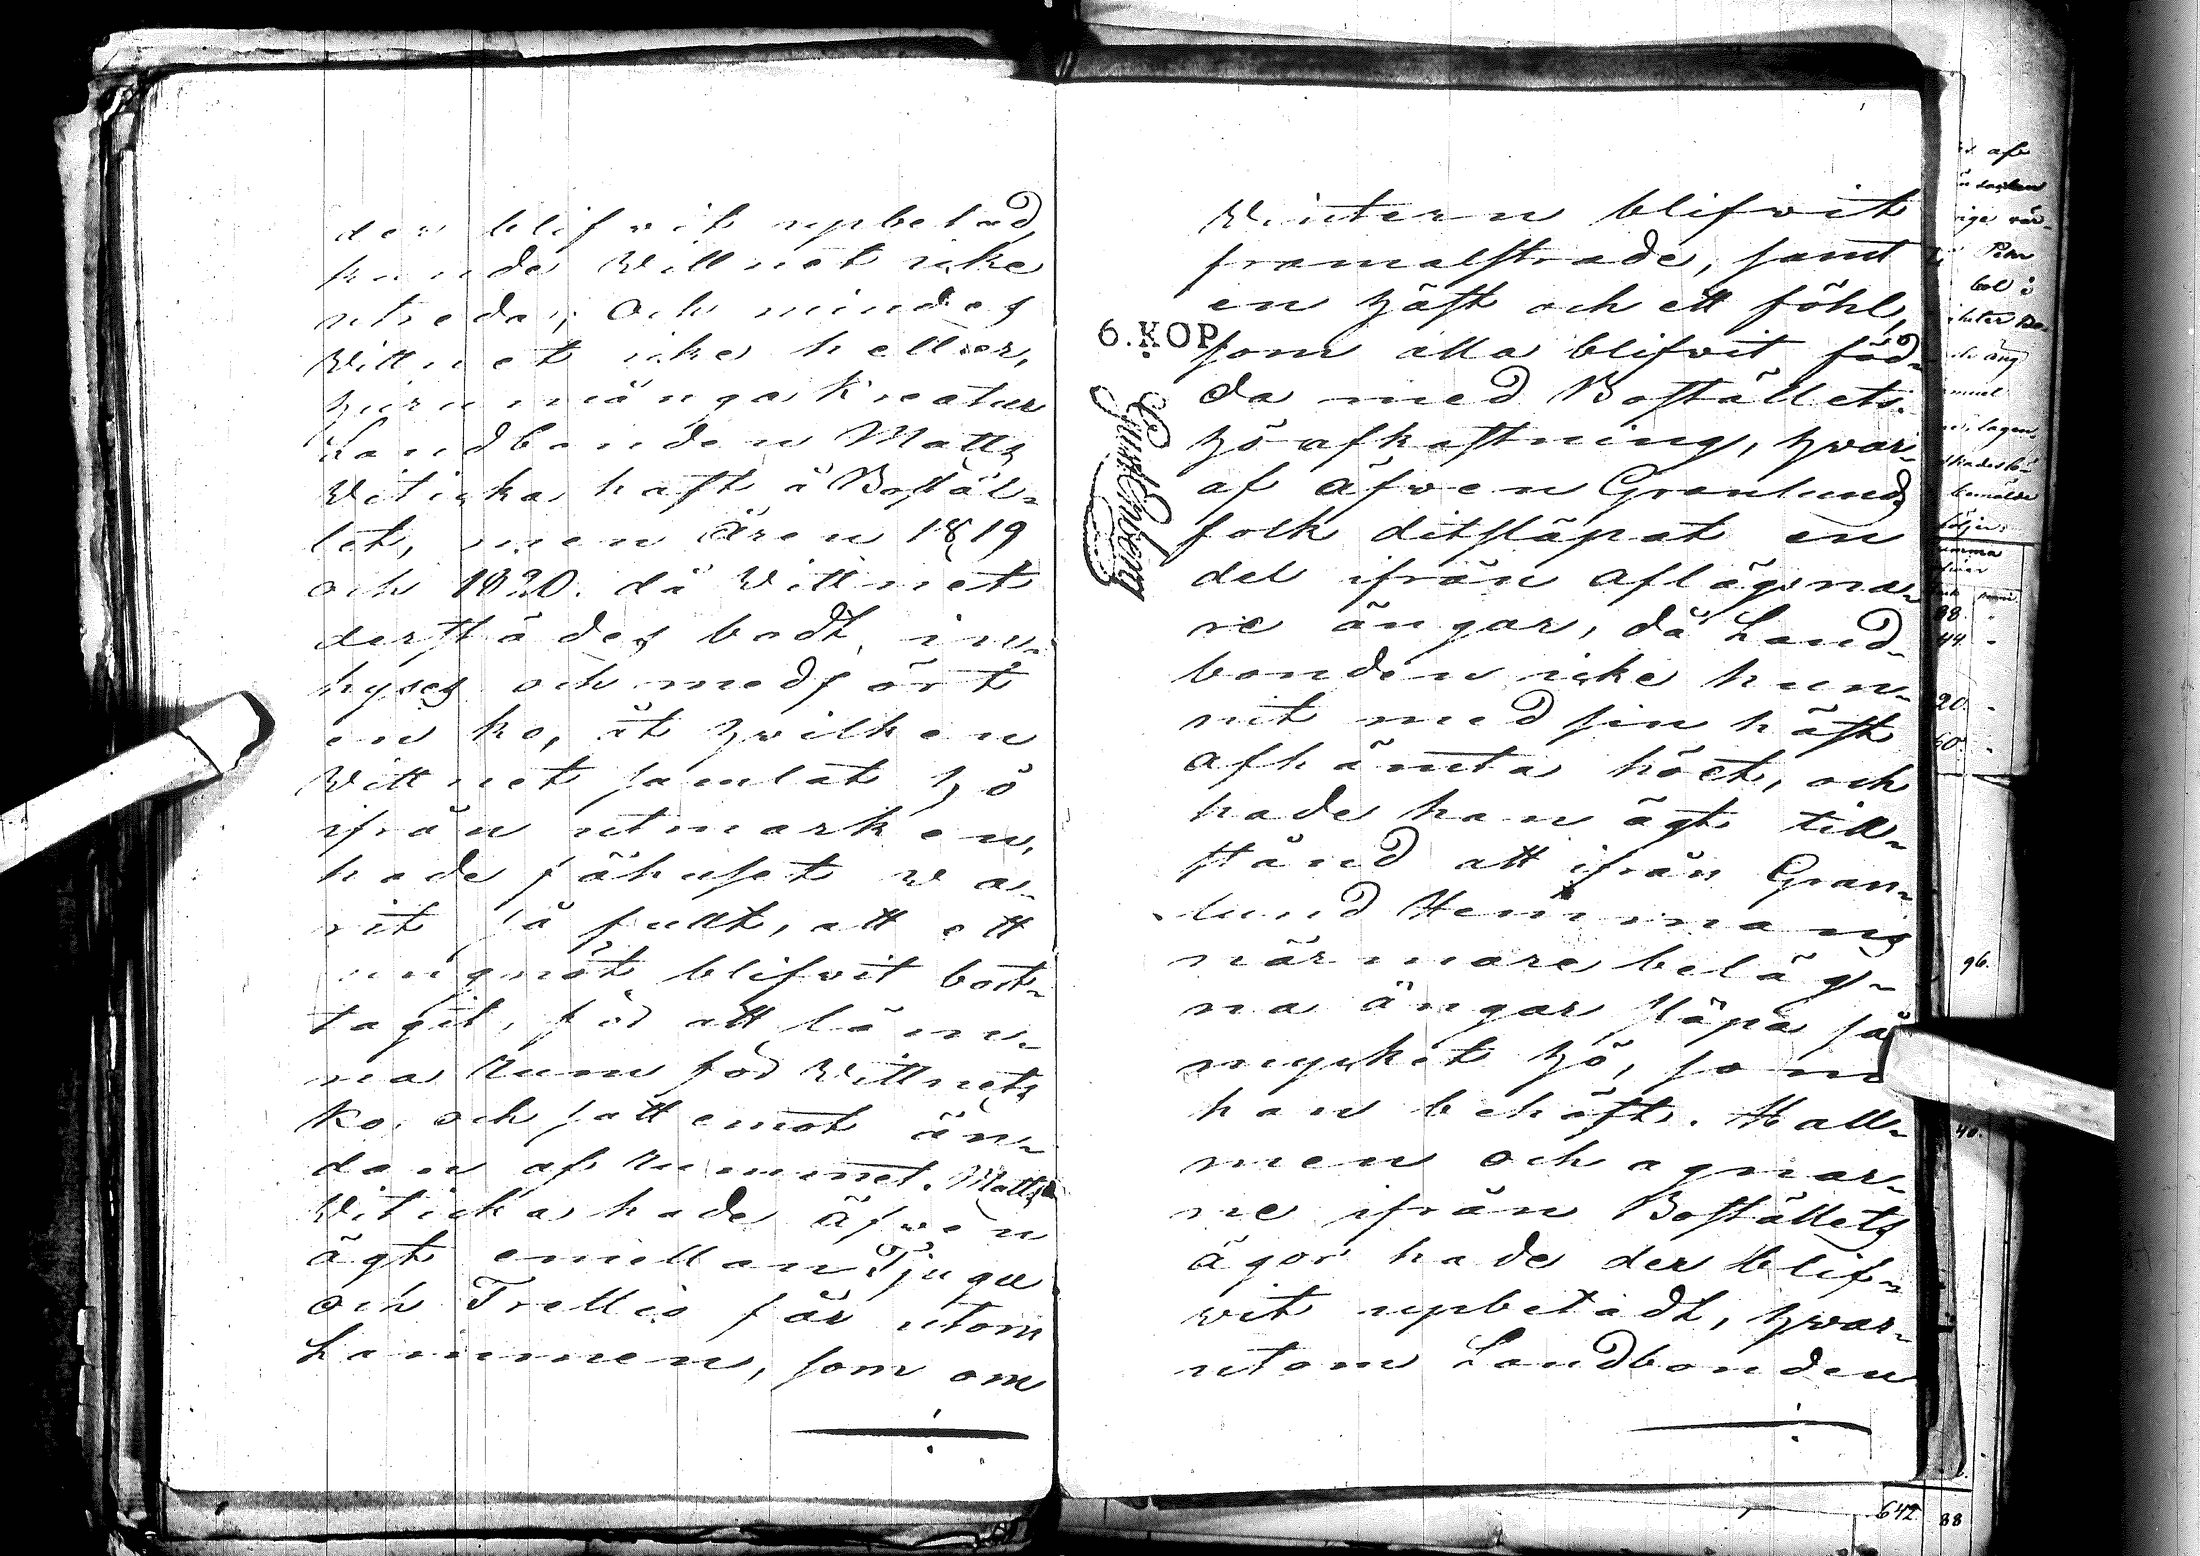 der blifvit upbetad,
kunde Wittnet icke
utreda; och mindes
Wittnet icke heller,
huru många Kreatur
Landbonden Matts
Witicka haft å Bostäl-
let, men åren 1819
och 1820. då Wittnet
derstädes bodt in-
hyses och medfört
en ko, åt hvilken
Wittnet samlat hö
ifrån utmarken,
hade fähuset wa-
rit så fullt, att ett
ungnöt blifvit bort-
tagit, för att läm-
na Rum för Wittnets
Ko, och satt emot än-
dan af Rummet. Matts
Witicka hade äfven
ägt emellan Tjugu
och Trettio får utom
Lammen, som om
Wintern blifvit
framalstrade, samt
en häst och ett föhl,
6. KOP.
som alla blifvit föd-
da med Boställets
hö afkastning, hvar-
af äfven Granlunds
folk ditsläpat en
del ifrån aflägsna-
re ängar, då Land-
bonden icke hun-
nit med sin häst
afhämta höet, och
hade han ägt till-
stånd att ifrån Gran-
lund Hemmans
närmare beläg-
na ängar släpa så
mycket hö, som
han behöft. Hal-
men och agnar-
ne ifrån Boställets
ägor hade der blif-
vit upbetadt, hvar-
utom Landbonden
af
Petr
bol
äng
20.
60.
96.
40.
642 88